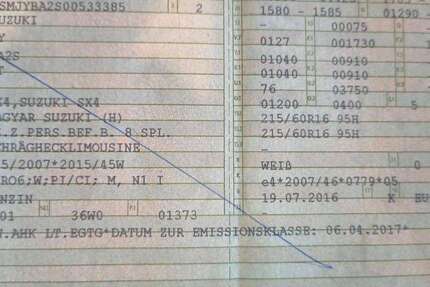 SMJYBA2S00533385 2
UZUKI
Y
A2S
T
X4,SUZUKI SX4
AGYAR SUZUKI (H)
Z.Z.PERS.BEF.B. 8 SPL.
CHRÄGHECKLIMOUSINE
5/2007*2015/45W
RO6;W;PI/CI; M, N1 I
ENZIN
01 36W0 01373
W.AHK LT.EGTG*DATUM ZUR EMISSIONSKLASSE: 06.04.2017*
1580 - 1585 01290 -
- 00075 -
0127 001730
01040 00910
01040 00910
76 03750
01200 0400 5
215/60R16 95H
215/60R16 95H
-
WEIß 0
e4*2007/46*0779*05
19.07.2016 K EU